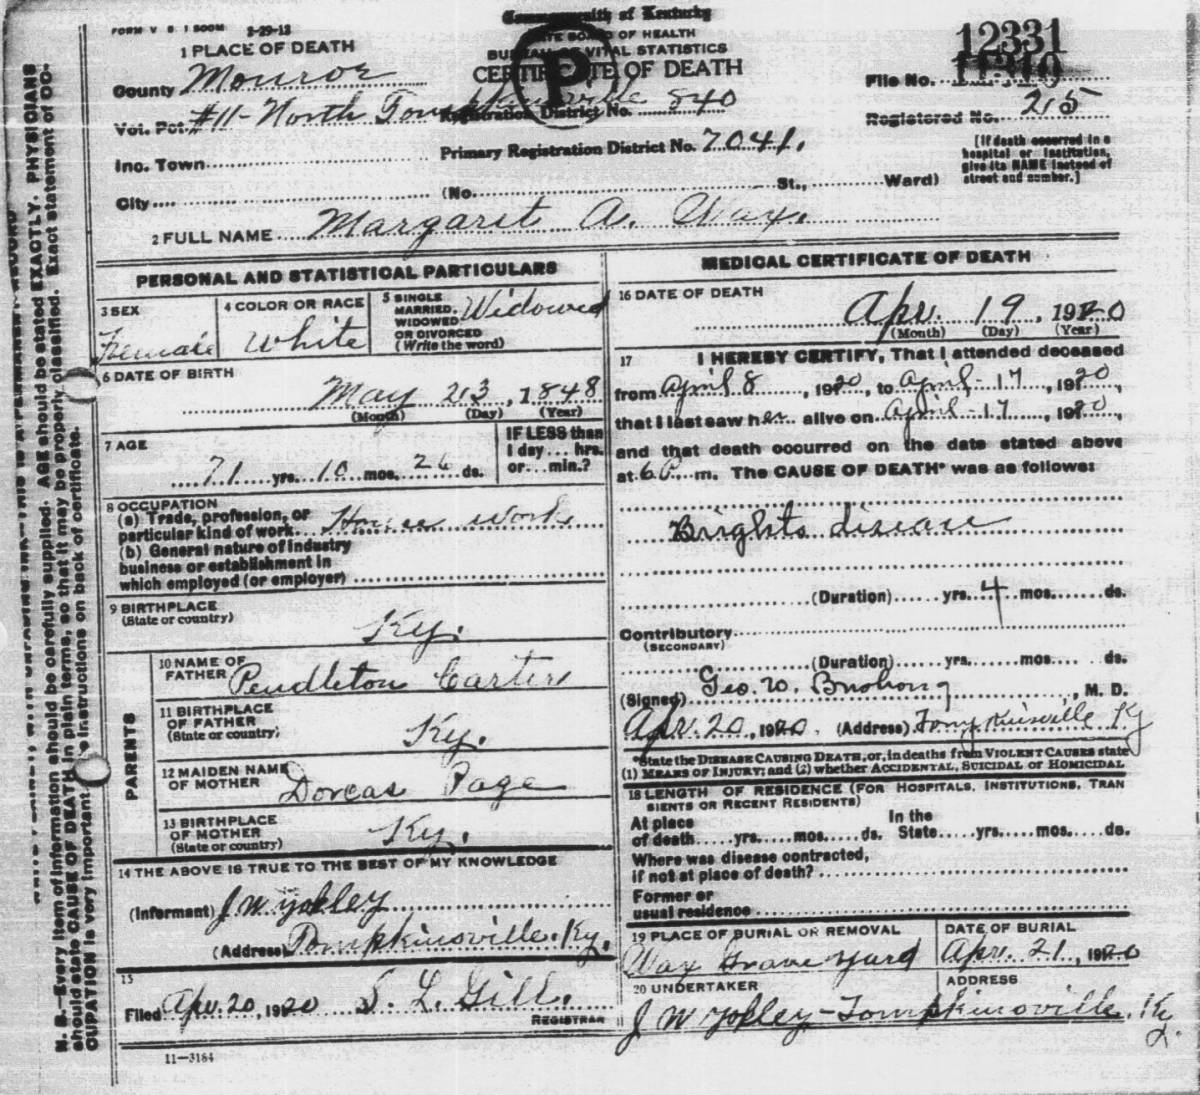 FORM V. S. 1 500M 2-29-12
Commonwealth of Kentucky
STATE BOARD OF HEALTH
BUREAU OF VITAL STATISTICS
CERTIFICATE OF DEATH
P
1 PLACE OF DEATH
County Monroe
Vot. Pct. #11- North Tompkinsville
Registration District No. 840
Inc. Town
Primary Registration District No. 7041.
City
(No. St., Ward)
File No. 12331
Registered No. 215
[If death occurred in a hospital or institution, give its NAME instead of street and number.]
2 FULL NAME Margaret A. Wax.
PERSONAL AND STATISTICAL PARTICULARS
3 SEX Female
4 COLOR OR RACE White
5 SINGLE MARRIED, WIDOWED OR DIVORCED (Write the word) Widowed
6 DATE OF BIRTH
May 23, 1848
(Month) (Day) (Year)
7 AGE
71 yrs. 10 mos. 26 ds.
IF LESS than 1 day... hrs. or... min.?
8 OCCUPATION
(a) Trade, profession, or particular kind of work House work
(b) General nature of industry business or establishment in which employed (or employer)
9 BIRTHPLACE
(State or country) Ky.
PARENTS
10 NAME OF FATHER Pendleton Carter
11 BIRTHPLACE OF FATHER
(State or country) Ky.
12 MAIDEN NAME OF MOTHER Dorcas Page
13 BIRTHPLACE OF MOTHER
(State or country) Ky.
14 THE ABOVE IS TRUE TO THE BEST OF MY KNOWLEDGE
(Informant) J W Yokley
(Address) Tompkinsville. Ky.
15
Filed Apr. 20, 1920 S. L. Gill.
REGISTRAR
11-3184
MEDICAL CERTIFICATE OF DEATH
16 DATE OF DEATH
Apr. 19, 1920
(Month) (Day) (Year)
17 I HEREBY CERTIFY, That I attended deceased
from April 8, 1920, to April-17, 1920,
that I last saw her alive on April-17, 1920,
and that death occurred on the date stated above
at 6 P. m. The CAUSE OF DEATH* was as follows:
Brights disease
(Duration) yrs. 4 mos. ds.
Contributory
(SECONDARY)
(Duration) yrs. mos. ds.
(Signed) Geo. W. Bushong, M. D.
Apr. 20, 1920. (Address) Tompkinsville Ky
*State the DISEASE CAUSING DEATH, or, in deaths from VIOLENT CAUSES state
(1) MEANS OF INJURY; and (2) whether ACCIDENTAL, SUICIDAL OF HOMICIDAL
18 LENGTH OF RESIDENCE (FOR HOSPITALS, INSTITUTIONS, TRAN
SIENTS OR RECENT RESIDENTS)
At place of death yrs. mos. ds. In the State yrs. mos. ds.
Where was disease contracted,
if not at place of death?
Former or
usual residence
19 PLACE OF BURIAL OR REMOVAL
Wax Grave yard
DATE OF BURIAL
Apr. 21, 1920
20 UNDERTAKER
ADDRESS
J W Yokley-Tompkinsville. Ky
N. B.—Every item of information should be carefully supplied. AGE should be stated EXACTLY. PHYSICIANS
should state CAUSE OF DEATH in plain terms, so that it may be properly classified. Exact statement of OC-
CUPATION is very important. See instructions on back of certificate.